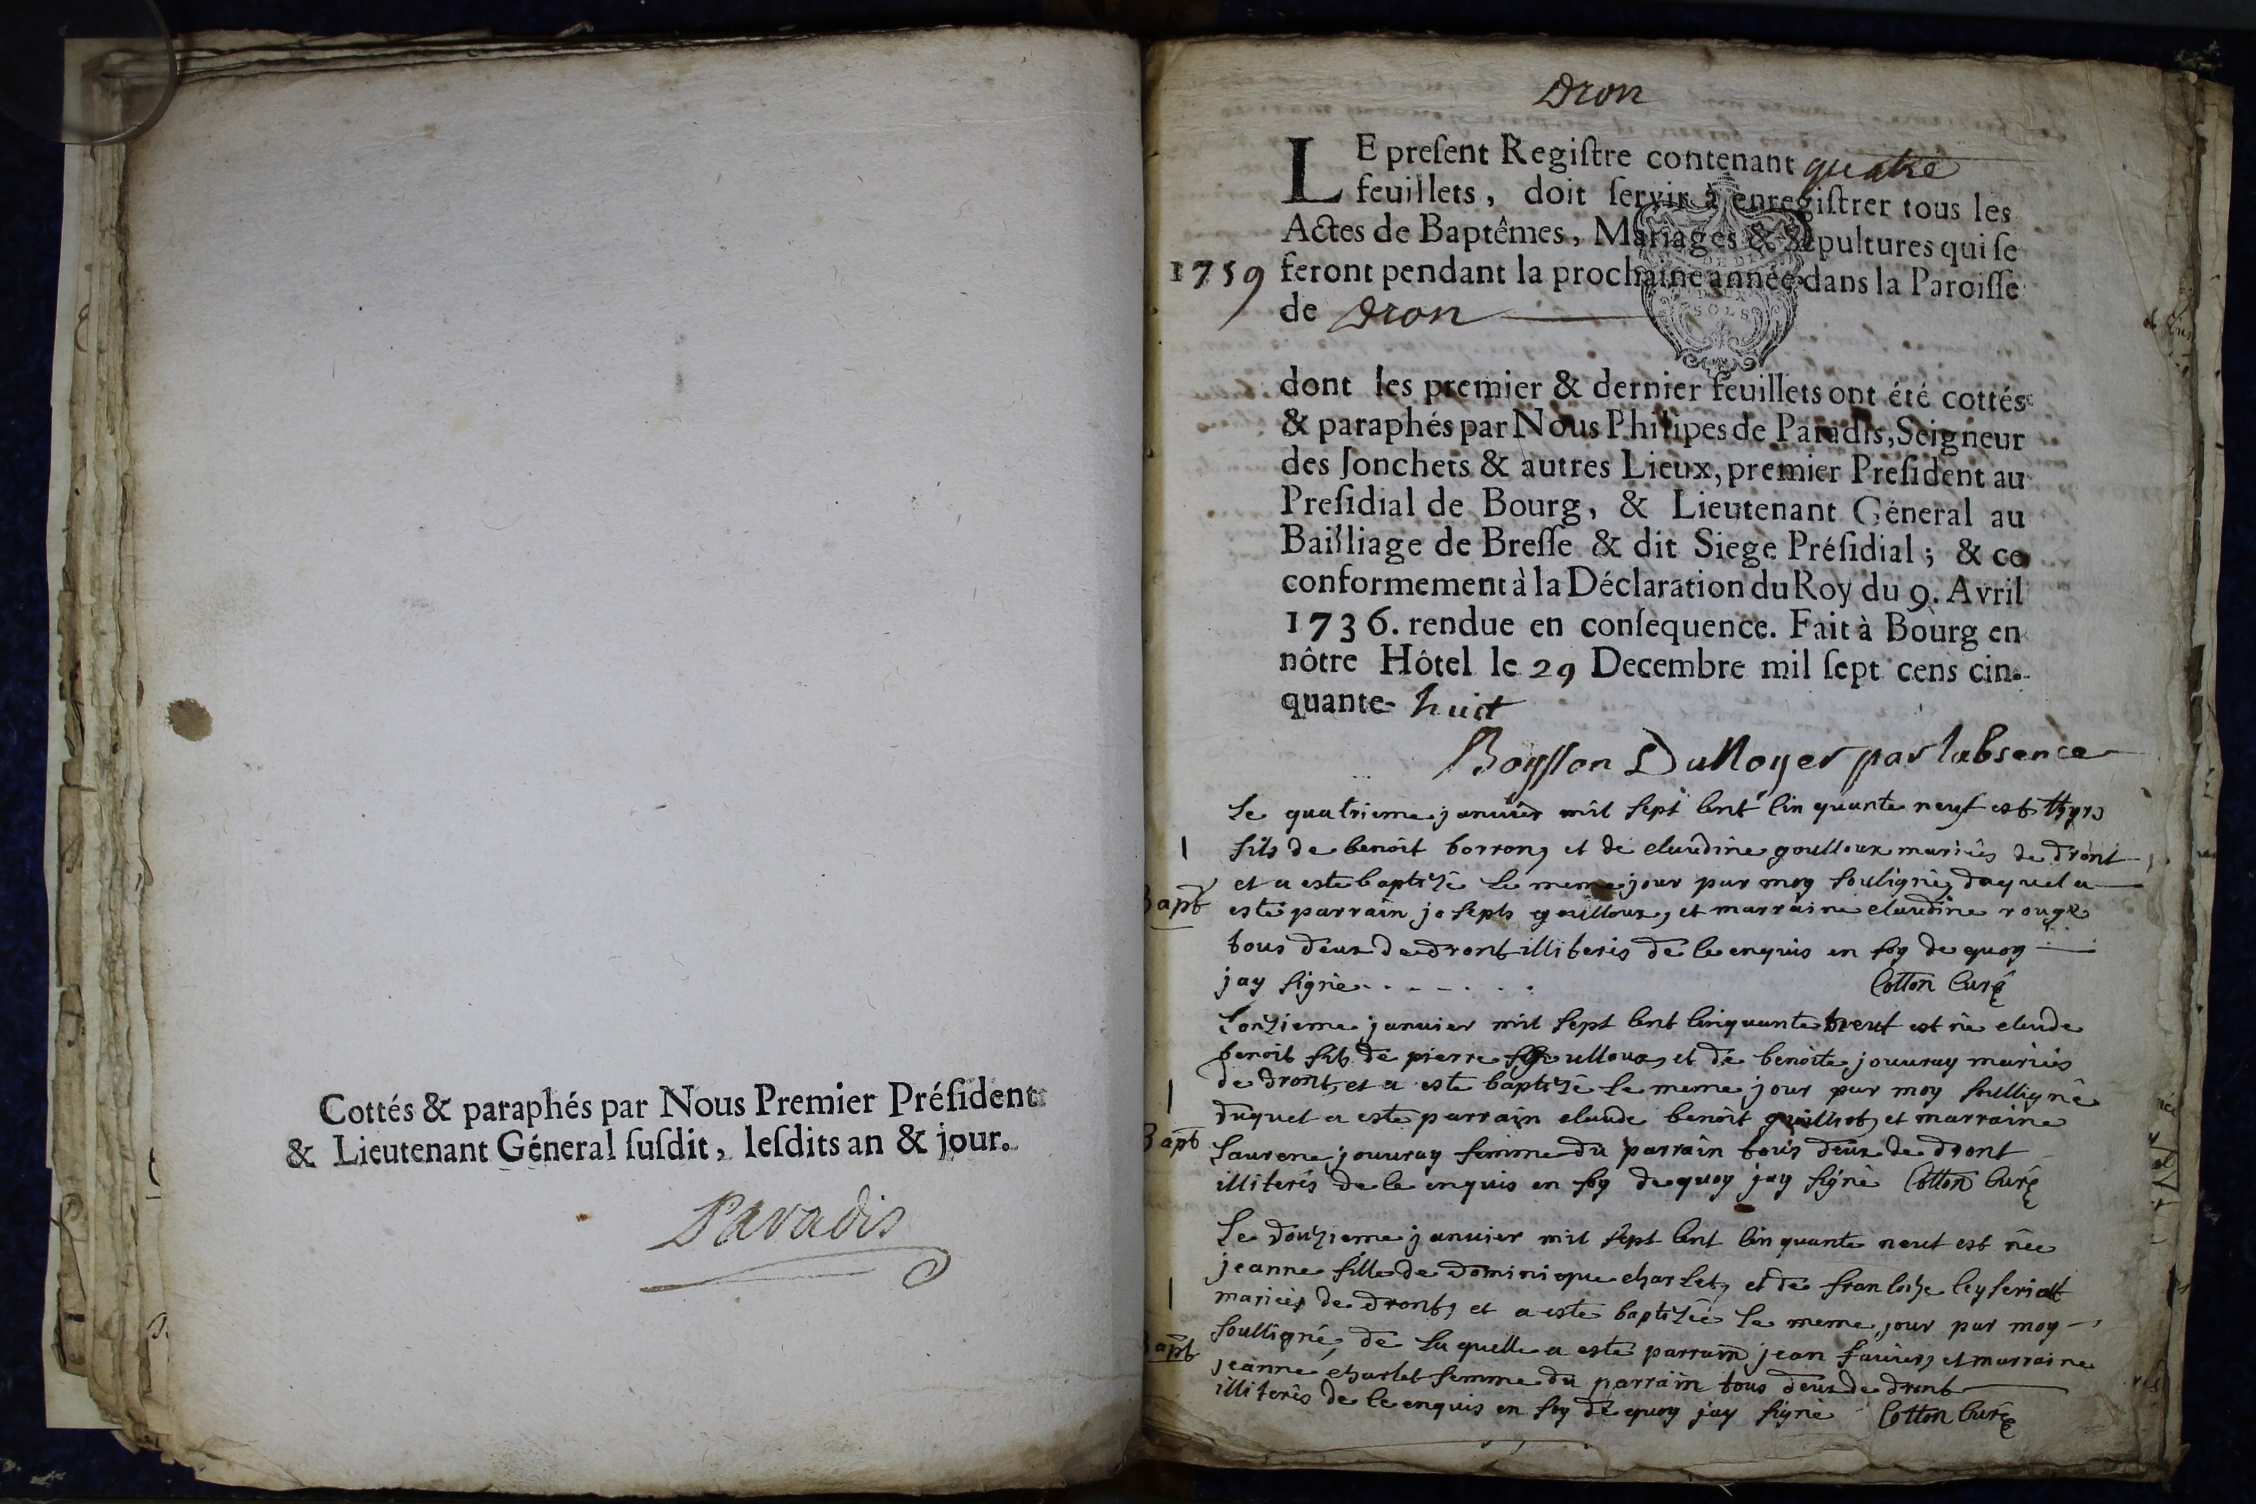 Cottés & paraphés par Nous Premier Préſident
& Lieutenant Géneral ſuſdit, leſdits an & jour.
Paradis
Dron
LE preſent Regiſtre contenant quatre
feuillets, doit ſervir à enregiſtrer tous les
Actes de Baptêmes, Mariages & Sepultures qui ſe
1759 feront pendant la prochaine année dans la Paroiſſe
de Dron
SOLS
dont les premier & dernier feuillets ont été cottés
& paraphés par Nous Philipes de Paradis, Seigneur
des Jonchets & autres Lieux, premier Preſident au
Preſidial de Bourg, & Lieutenant Géneral au
Bailliage de Breſſe & dit Siege Préſidial; & ce
conformement à la Déclaration du Roy du 9. Avril
1736. rendue en conſequence. Fait à Bourg en
nôtre Hôtel le 29 Decembre mil ſept cens cin-
quante- huit
Boysson DuNoyer par labsence
Le quatrieme janvier mil sept cent cinquante neuf est
1 fils de benoit borron, et de claudine goulloux mariés de dront
et a este baptisé le meme jour par moy soulignè, duquel a
Bapt este parrain joseph goulloux, et marraine claudine rouge
tous deux de dront illiterés de ce enquis en foy de quoy
jay signè Cotton Curé
Lonzieme janvier mil sept cent cinquante neuf est né claude
benoit fils de pierre goulloux, et de benoite jouuray mariés
1 de dront, et a este baptisé le meme jour par moy soulligné
duquel a este parrain claude benoit guillot, et marraine
Bapt Laurene jouuray femme du parrain tous deux de dront
illiterés de ce enquis en foy de quoy jay signè Cotton Curé
Le douzieme janvier mil sept cent cinquante neuf est née
jeanne fille de dominique charlet, et de francoise leyseriat
1 mariés de dront, et a este baptisée le meme jour par moy
soulligné, de laquelle a este parrain jean favier, et marraine
Bapt jeanne charlet femme du parrain tous deux de dront
illiterés de ce enquis en foy de quoy jay signè Cotton Curé